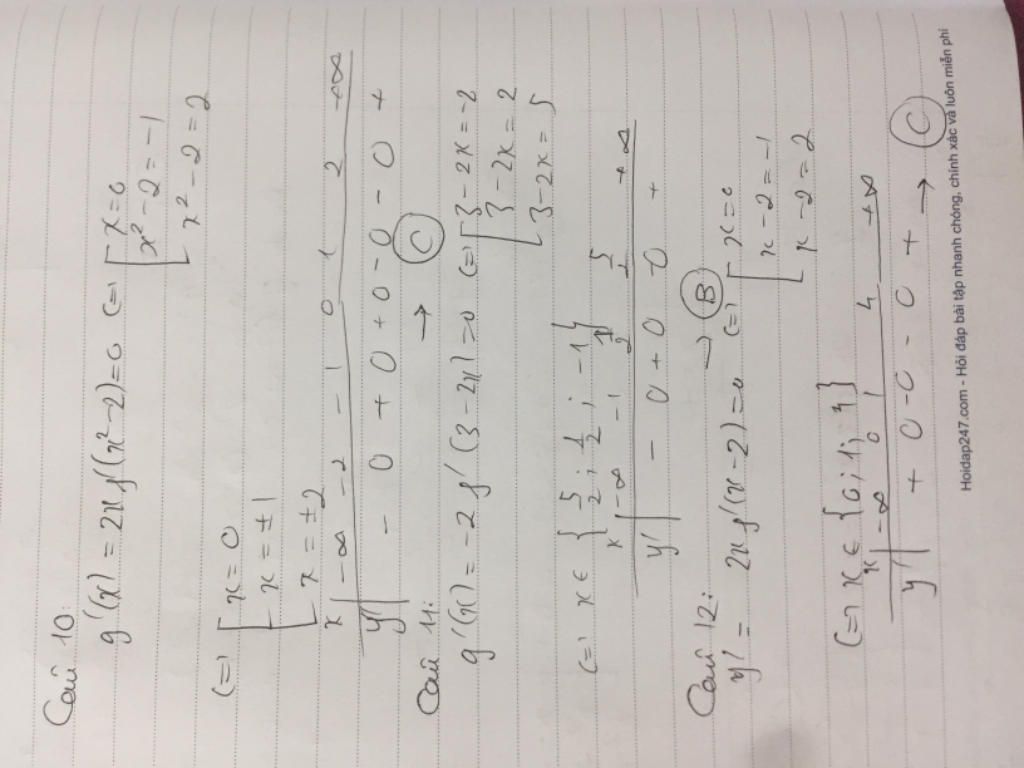 Câu 10:
g'(x) = 2x f'(x²-2)=0 (=) [ x=0
x²-2=-1
x²-2=2
(=) [ x=0
x=±1
x=±2
x | -∞ -2 -1 0 1 2 +∞
y' | - 0 + 0 + 0 - 0 - 0 +
→ C
Câu 11:
g'(x) = -2 f'(3-2x)=0 (=) [ 3-2x=-2
3-2x=2
3-2x=5
(=) x ∈ { 5/2 ; 1/2 ; -1 }
x | -∞ -1 1/2 5/2 +∞
y' | - 0 + 0 - 0 +
→ B
Câu 12:
y' = 2x f'(x-2)=0 (=) [ x=0
x-2=-1
x-2=2
(=) x ∈ {0; 1; 4}
x | -∞ 0 1 4 +∞
y' | + 0 - 0 - 0 + → C
Hoidap247.com - Hỏi đáp bài tập nhanh chóng, chính xác và luôn miễn phí